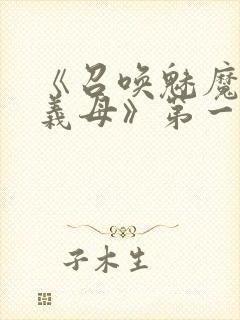 《召唤魅魔
義母》第一
子木生